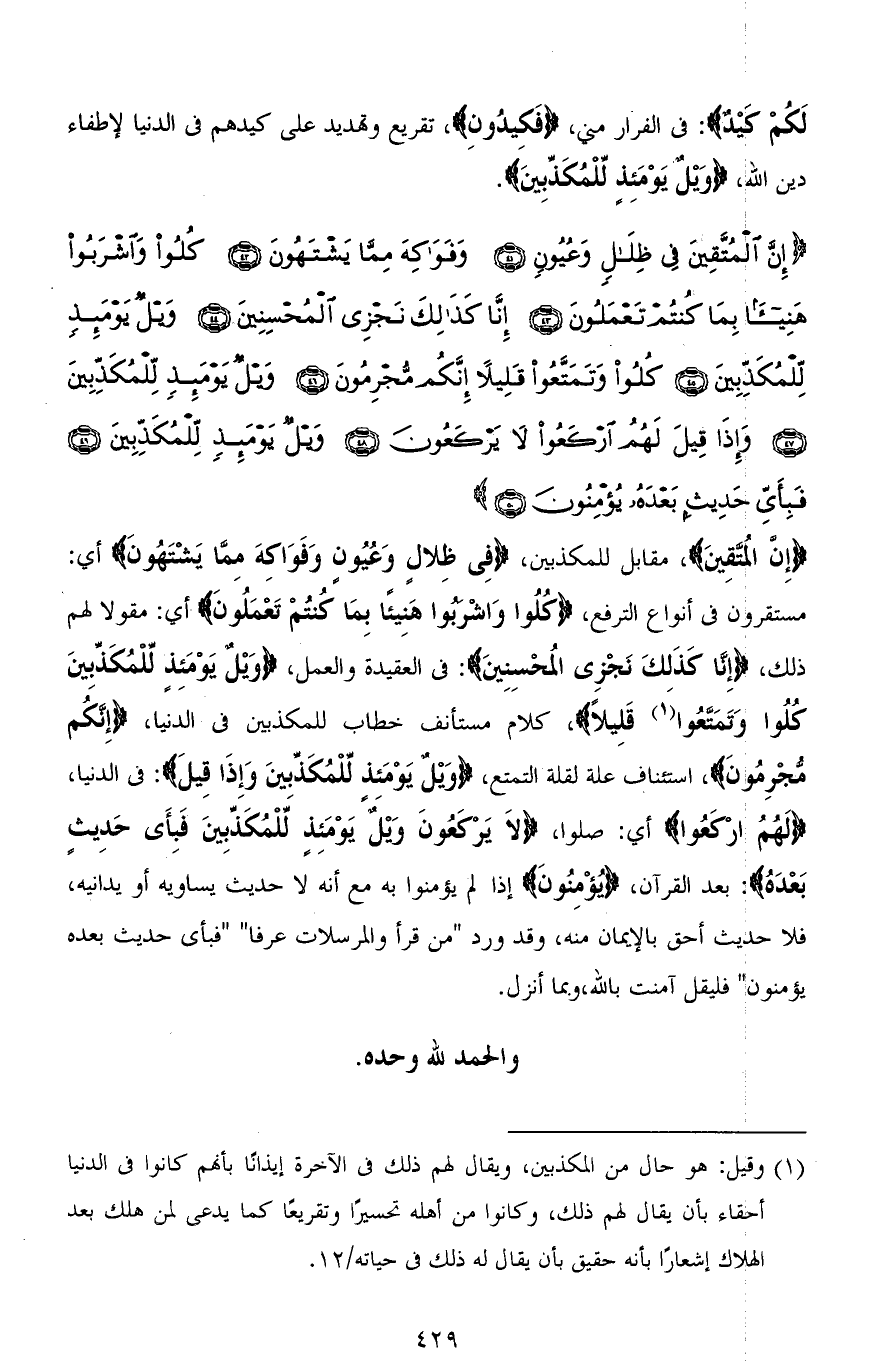 لَكُمْ كَيْدٌ﴾: فى الفرار مني، ﴿فَكِيدُونِ﴾، تقريع وتهديد على كيدهم فى الدنيا لإطفاء
دين الله، ﴿وَيْلٌ يَوْمَئِذٍ لِّلْمُكَذِّبِينَ﴾.
﴿إِنَّ ٱلْمُتَّقِينَ فِى ظِلَـٰلٍ وَعُيُونٍ ٤١ وَفَوَٰكِهَ مِمَّا يَشْتَهُونَ ٤٢ كُلُوا۟ وَٱشْرَبُوا۟
هَنِيٓـَٔۢا بِمَا كُنتُمْ تَعْمَلُونَ ٤٣ إِنَّا كَذَٰلِكَ نَجْزِى ٱلْمُحْسِنِينَ ٤٤ وَيْلٌ يَوْمَئِذٍ
لِّلْمُكَذِّبِينَ ٤٥ كُلُوا۟ وَتَمَتَّعُوا۟ قَلِيلًا إِنَّكُم مُّجْرِمُونَ ٤٦ وَيْلٌ يَوْمَئِذٍ لِّلْمُكَذِّبِينَ
٤٧ وَإِذَا قِيلَ لَهُمُ ٱرْكَعُوا۟ لَا يَرْكَعُونَ ٤٨ وَيْلٌ يَوْمَئِذٍ لِّلْمُكَذِّبِينَ ٤٩
فَبِأَىِّ حَدِيثٍۭ بَعْدَهُۥ يُؤْمِنُونَ ٥٠﴾
﴿إِنَّ الْمُتَّقِينَ﴾، مقابل للمكذبين، ﴿فِى ظِلالٍ وَعُيُونٍ وَفَوَاكِهَ مِمَّا يَشْتَهُونَ﴾ أي:
مستقرون فى أنواع الترفع، ﴿كُلُوا وَاشْرَبُوا هَنِيئًا بِمَا كُنتُمْ تَعْمَلُونَ﴾ أي: مقولا لهم
ذلك، ﴿إِنَّا كَذَلِكَ نَجْزِى الْمُحْسِنِينَ﴾: فى العقيدة والعمل، ﴿وَيْلٌ يَوْمَئِذٍ لِّلْمُكَذِّبِينَ
كُلُوا وَتَمَتَّعُوا(١) قَلِيلاً﴾، كلام مستأنف خطاب للمكذبين فى الدنيا، ﴿إِنَّكُم
مُّجْرِمُونَ﴾، استئناف علة لقلة التمتع، ﴿وَيْلٌ يَوْمَئِذٍ لِّلْمُكَذِّبِينَ وَإِذَا قِيلَ﴾: فى الدنيا،
﴿لَهُمُ ارْكَعُوا﴾ أي: صلوا، ﴿لاَ يَرْكَعُونَ وَيْلٌ يَوْمَئِذٍ لِّلْمُكَذِّبِينَ فَبِأَى حَدِيثٍ
بَعْدَهُ﴾: بعد القرآن، ﴿يُؤْمِنُونَ﴾ إذا لم يؤمنوا به مع أنه لا حديث يساويه أو يدانيه،
فلا حديث أحق بالإيمان منه، وقد ورد "من قرأ والمرسلات عرفا" "فبأى حديث بعده
يؤمنون" فليقل آمنت بالله،وبما أنزل.
والحمد لله وحده.
(١) وقيل: هو حال من المكذبين، ويقال لهم ذلك فى الآخرة إيذانًا بأنهم كانوا فى الدنيا
أحقاء بأن يقال لهم ذلك، وكانوا من أهله تحسيرًا وتقريعًا كما يدعى لمن هلك بعد
الهلاك إشعارًا بأنه حقيق بأن يقال له ذلك فى حياته/١٢.
٤٢٩